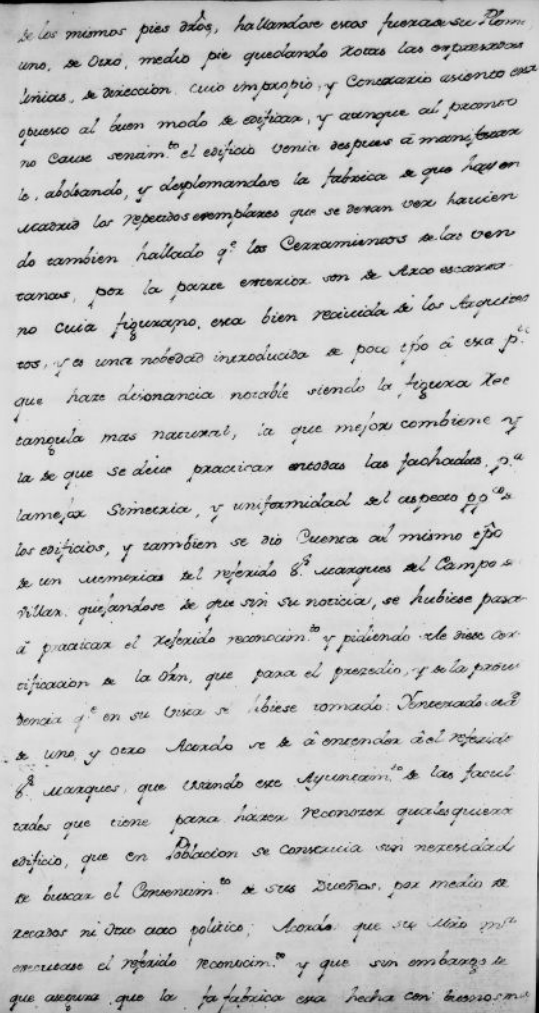 de los mismos pies dros, hallandose estos fuera de su Plomo
uno, de otro, medio pie quedando rotas las expresadas
liñias, de direccion. cuio impropio, y Contrario asiento esta
opuesto al buen modo de edificar, y aunque al pronto
no cause sentim.to el edificio venia despues â manifestar
lo, abolsando, y desplomandose la fabrica de que hay en
Madrid los repetidos exemplares que se devan ver havien
do tambien hallado q.e los Cerramientos de las ven
tanas, por la parte exterior son de Arco escarza
no cuia figura no, esta bien recivida de los Arquitec
tos, y es una nobedad introducida de poco tpô â esta p.te
que haze disonancia notable siendo la figura Rec
tangula mas natural, la que mejor combiene y
la de que se deve practicar en todas las fachadas, p.a
la mejor Simetria, y uniformidad del aspecto pp.co de
los edificios, y tambien se dio Cuenta al mismo tpô
de un Memorial del referido S.r Marques del Campo de
Villar. quejandose de que sin su noticia, se hubiese pasa
â practicar el referido reconocim.to y pidiendo se le diese Cer
tificacion de la Orn, que para el prezedio, y de la provi
dencia q.e en su vista se hubiese tomado: Y enterado
de uno, y otro Acordo se de â entender â el referido
S.r Marques, que usando este Ayuntam.to de las facul
tades que tiene para hazer reconozer qualesquiera
edificio, que en Poblacion se construia sin nezesidad
de buscar el Consentim.to de sus Dueños. por medio de
recados ni otro acto politico; Acordo que su Mro m.or
executase el referido reconocim.to y que sin embargo de
que asegura que la fa fabrica esta hecha con buenos ma